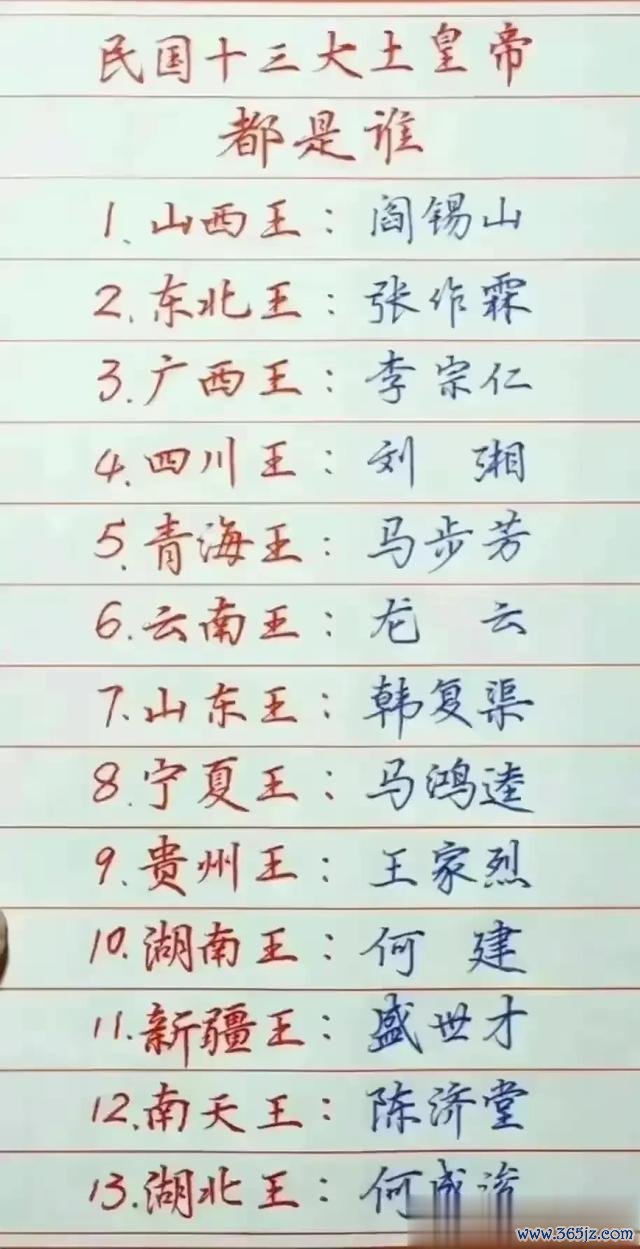 民国十三大土皇帝
都是谁
1.山西王：阎锡山
2.东北王：张作霖
3.广西王：李宗仁
4.四川王：刘 湘
5.青海王：马步芳
6.云南王：龙 云
7.山东王：韩复渠
8.宁夏王：马鸿逵
9.贵州王：王家烈
10.湖南王：何 建
11.新疆王：盛世才
12.南天王：陈济堂
13.湖北王：何成浚
www.365jz.com